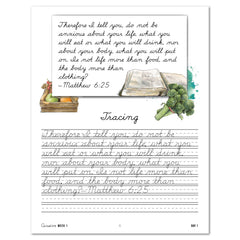 Therefore I tell you, do not be
anxious about your life, what you
will eat or what you will drink, nor
about your body, what you will
put on. Is not life more than food, and
the body more than
clothing?
-Matthew 6:25
Tracing
Therefore I tell you, do not be
anxious about your life, what you
will eat or what you will drink,
nor about your body, what you
will put on. Is not life more than
food, and the body more than
clothing? -Matthew 6:25
WEEK 1
DAY 1